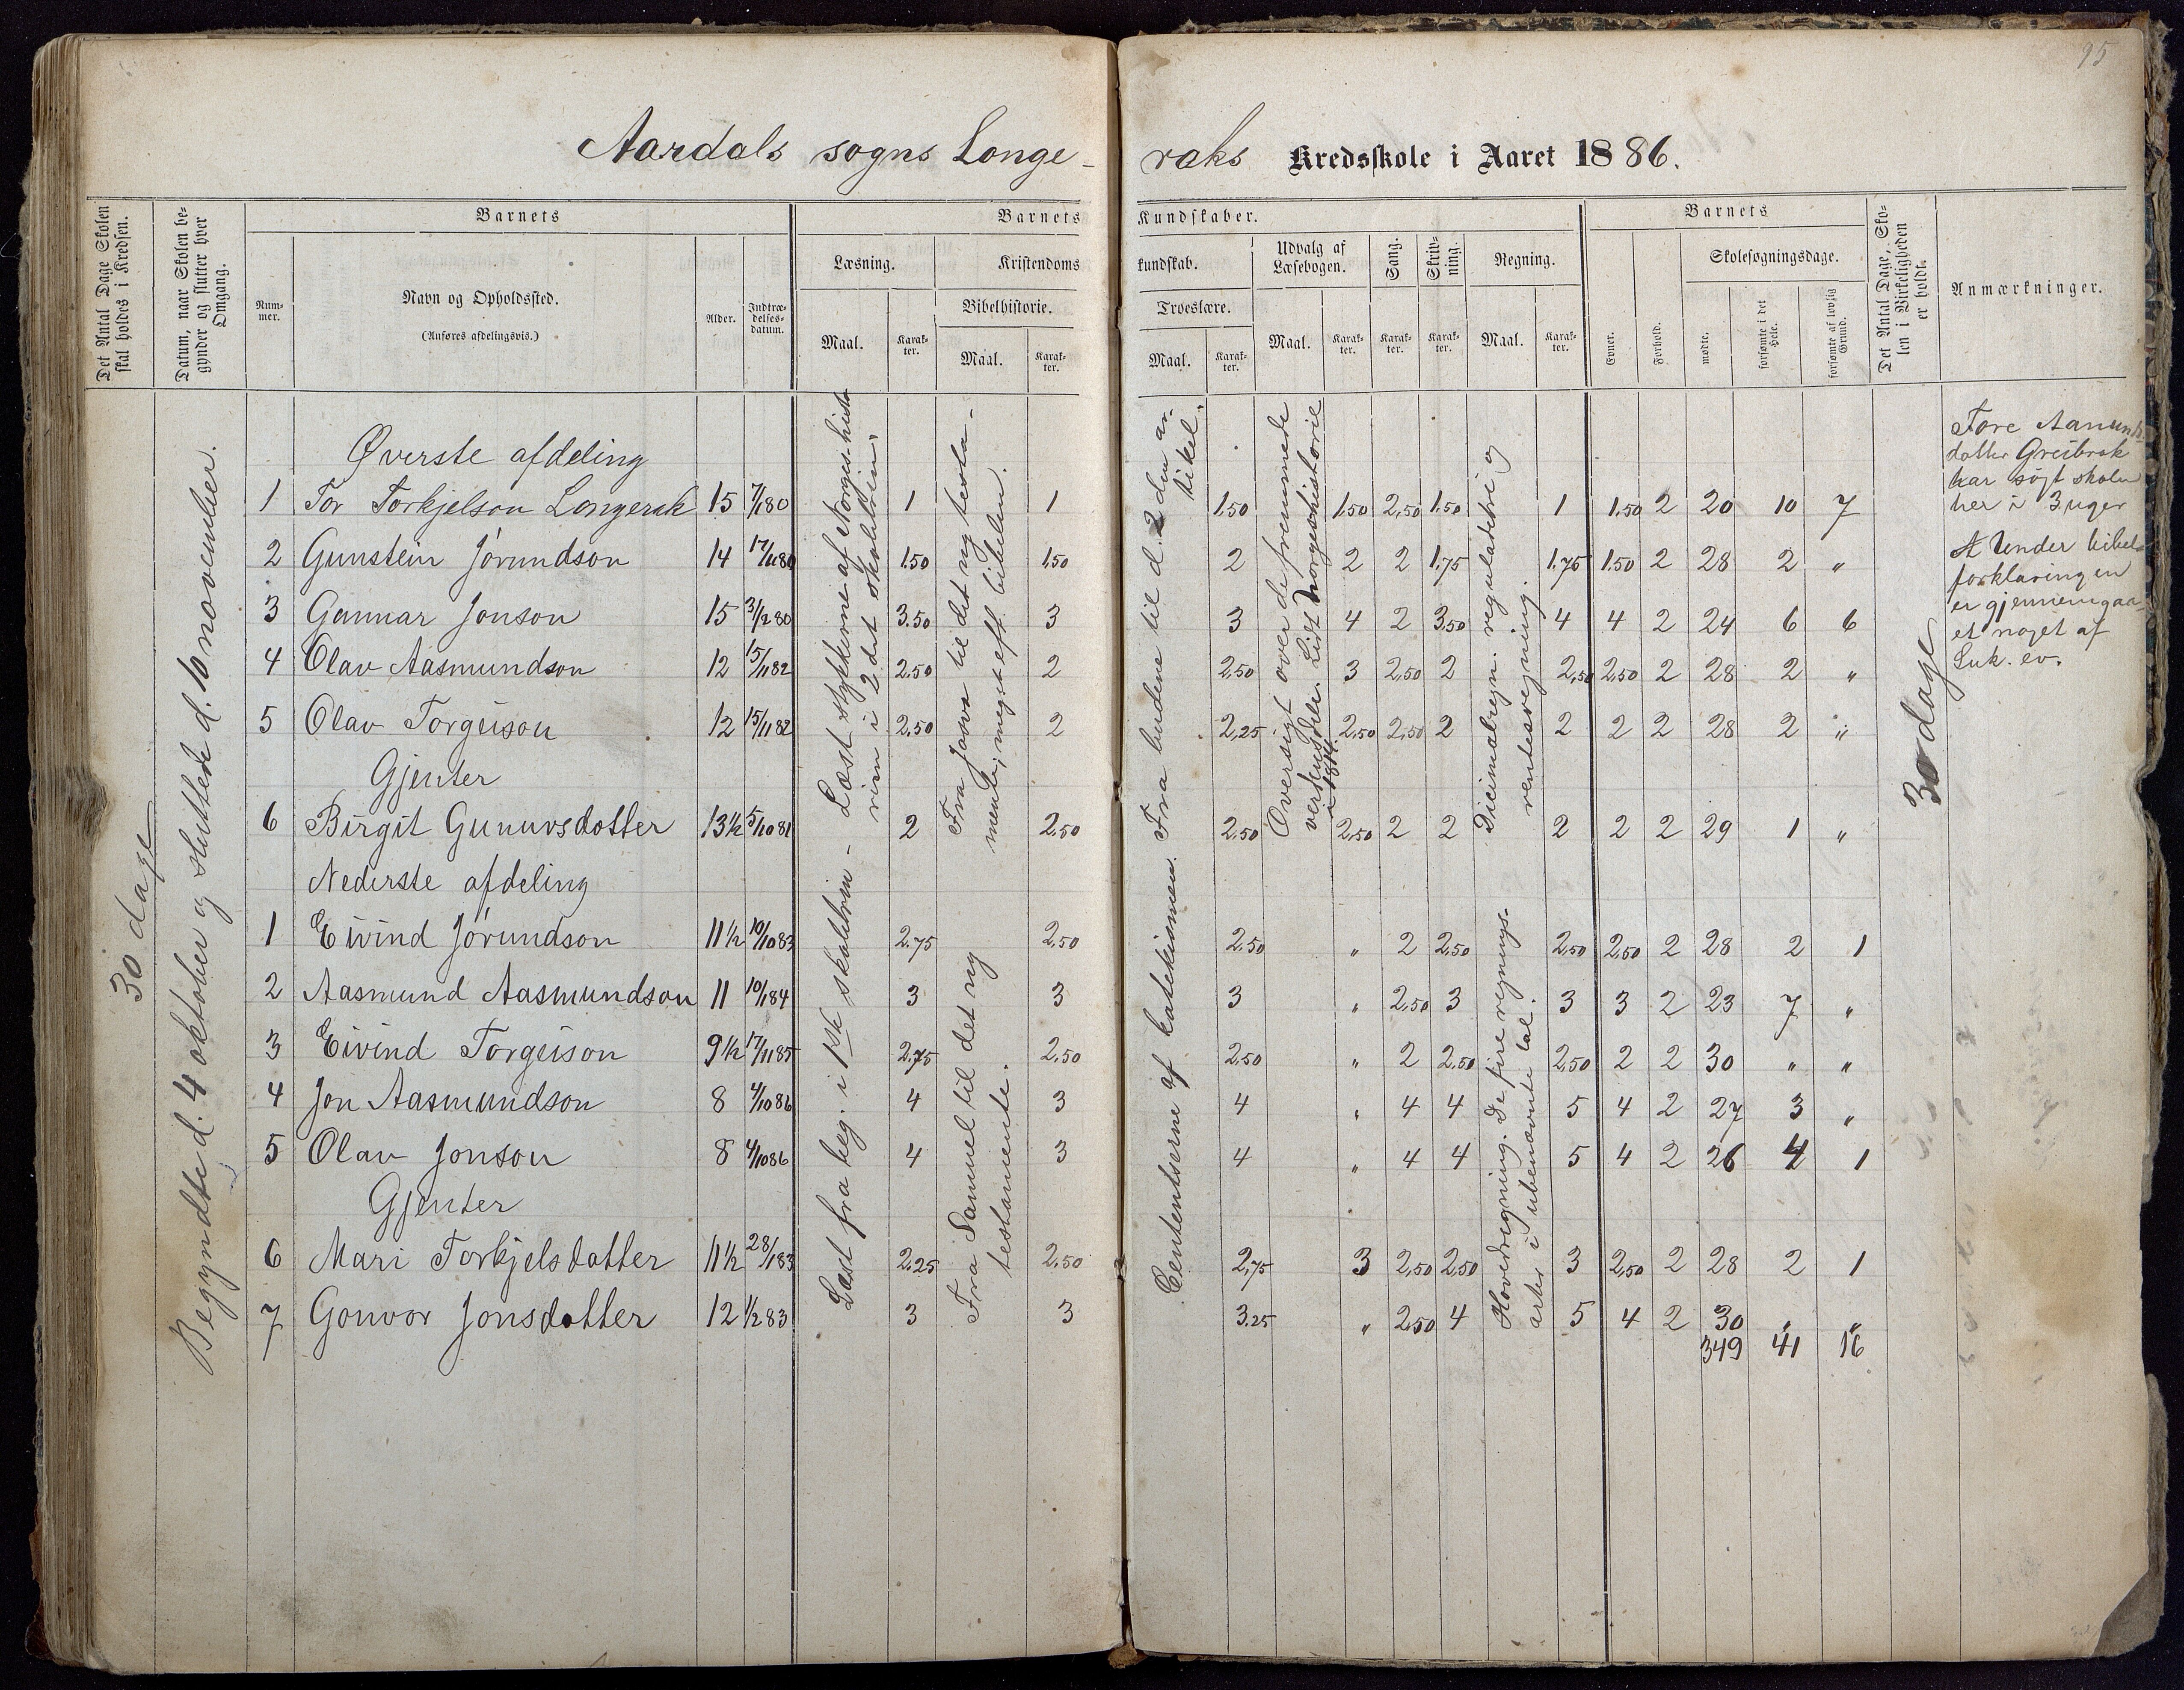 95
Aardals sogns Longe-
raks Kredsskole i Aaret 1886.
Det Antal Dage Skolen skal holdes i Kredsen.
Datum, naar Skolen begynder og slutter hver Omgang.
Barnets
Nummer.
Navn og Opholdssted.
(Anføres afdelingsvis.)
Alder.
Indtrædelsesdatum.
Barnets
Kundskaber.
Læsning.
Maal.
Karakter.
Kristendoms
kundskab.
Bibelhistorie.
Maal.
Karakter.
Troeslære.
Maal.
Karakter.
Udvalg af Læsebogen.
Maal.
Karakter.
Sang.
Karakter.
Skrivning.
Karakter.
Regning.
Maal.
Karakter.
Barnets
Evner.
Forhold.
Skolesøgningsdage.
mødte.
forsømte i det Hele.
forsømte af lovlig Grund.
Det Antal Dage, Skolen i Virkeligheden er holdt.
Anmærkninger.
30 dage
Begyndte d. 4 oktober og sluttede d. 10 november.
Øverste afdeling
1 Tor Torkjelson Longerak 15 7/1 80 1 1 1.50 1.50 2,50 1.50 1 1.50 2 20 10 7
2 Gunstein Jørundson 14 17/11 80 1.50 1.50 2 2 2 1.75 1.75 1.50 2 28 2 "
3 Gunnar Jonson 15 3/12 80 3.50 3 3 4 2 3.50 4 4 2 24 6 6
4 Olav Aasmundson 12 15/11 82 2.50 2 2,50 3 2,50 2 2,50 2,50 2 28 2 "
5 Olav Torgeison 12 15/11 82 2,50 2 2,25 2,50 2,50 2 2 2 2 28 2 "
Gjenter
6 Birgit Gunuvsdotter 13½ 5/10 81 2 2,50 2,50 2,50 2 2 2 2 2 29 1 "
Nederste afdeling
1 Eivind Jørundson 11½ 10/10 83 2.75 2,50 2.50 " 2 2,50 2,50 2,50 2 28 2 1
2 Aasmund Aasmundson 11 10/1 84 3 3 3 " 2,50 3 3 3 2 23 7 "
3 Eivind Torgeison 9½ 17/11 85 2.75 2,50 2,50 " 2 2,50 2,50 2 2 30 " "
4 Jon Aasmundson 8 4/10 86 4 3 4 " 4 4 5 4 2 27 3 "
5 Olav Jonson 8 4/10 86 4 3 4 " 4 4 5 4 2 26 4 1
Gjenter
6 Mari Torkjelsdatter 11½ 28/1 83 2,25 2,50 2,75 3 2,50 2,50 3 2,50 2 28 2 1
7 Gonvor Jonsdotter 12 1/2 83 3 3 3.25 " 2,50 4 5 4 2 30 " "
349 41 16
Læst stykkerne af Norgis histo
rien i 2det skoletrin.
Læst fra beg. i 1ste skoletrin-
Fra Josva til det ny testa-
mente, meget eft. bibelen.
Fra Samuel til det ny
testamente.
Fra budene til d. 2den ar-
tikel.
af katekismen.
Oversigt over de fremmede
verdensdele. Lidt Norgeshistorie
i 1814.
Dicimalregn. reguladetri og
rentesregning.
Hovedregning. De fire regnings-
arter i ubenævnte tal.
30 dage
Tore Aanunds
datter Greibrok
har søgt skolen
her i 3 uger
Under bibel-
forklaringen
er gjennemgaa-
et noget af
Luk. ev.